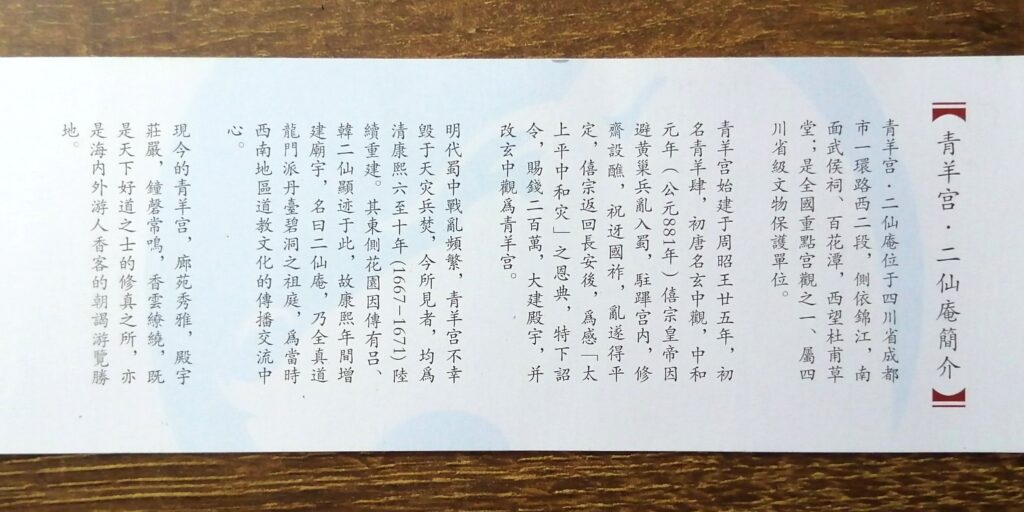 【青羊宫·二仙庵簡介】
青羊宫·二仙庵位于四川省成都
市一環路西二段，側依錦江，南
面武侯祠、百花潭，西望杜甫草
堂；是全國重點宫觀之一、屬四
川省級文物保護單位。
青羊宫始建于周昭王廿五年，初
名青羊肆，初唐名玄中觀，中和
元年（公元881年）僖宗皇帝因
避黄巢兵亂入蜀，駐蹕宫内，修
齋設醮，祝迓國祚，亂遂得平
定，僖宗返回長安後，爲感「太
上平中和灾」之恩典，特下詔
令，賜錢二百萬，大建殿宇，并
改玄中觀爲青羊宫。
明代蜀中戰亂頻繁，青羊宫不幸
毁于天灾兵焚，今所見者，均爲
清康熙六至十年(1667-1671)陸
續重建。其東側花園因傳有吕、
韓二仙顯迹于此，故康熙年間增
建廟宇，名曰二仙庵，乃全真道
龍門派丹臺碧洞之祖庭，爲當時
西南地區道教文化的傳播交流中
心。
現今的青羊宫，廊苑秀雅，殿宇
莊嚴，鐘磬常鳴，香雲繚繞，既
是天下好道之士的修真之所，亦
是海内外游人香客的朝謁游覽勝
地。